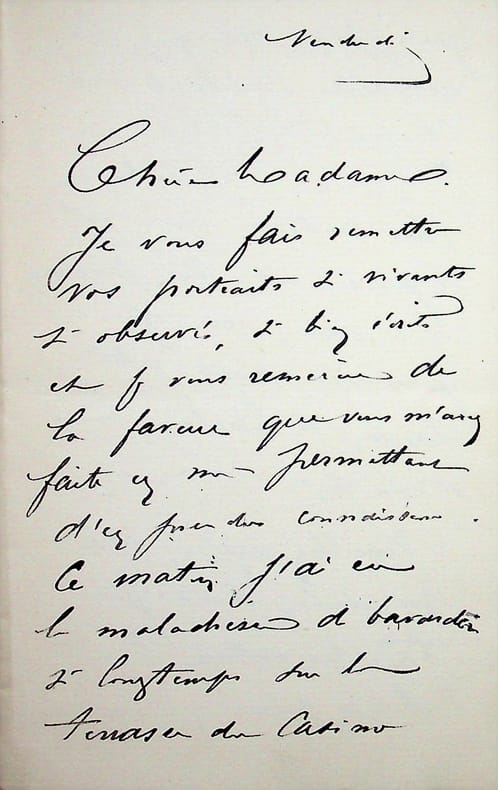 Vendredi
Chère Madame.
Je vous fais remettre
vos portraits si vivants
si observés, si bien écrits
et je vous remercie de
la faveur que vous m'avez
faite en me permettant
d'en prendre connaissance.
Ce matin j'ai eu
la maladresse de bavarder
si longtemps sur la
terrasse du Casino